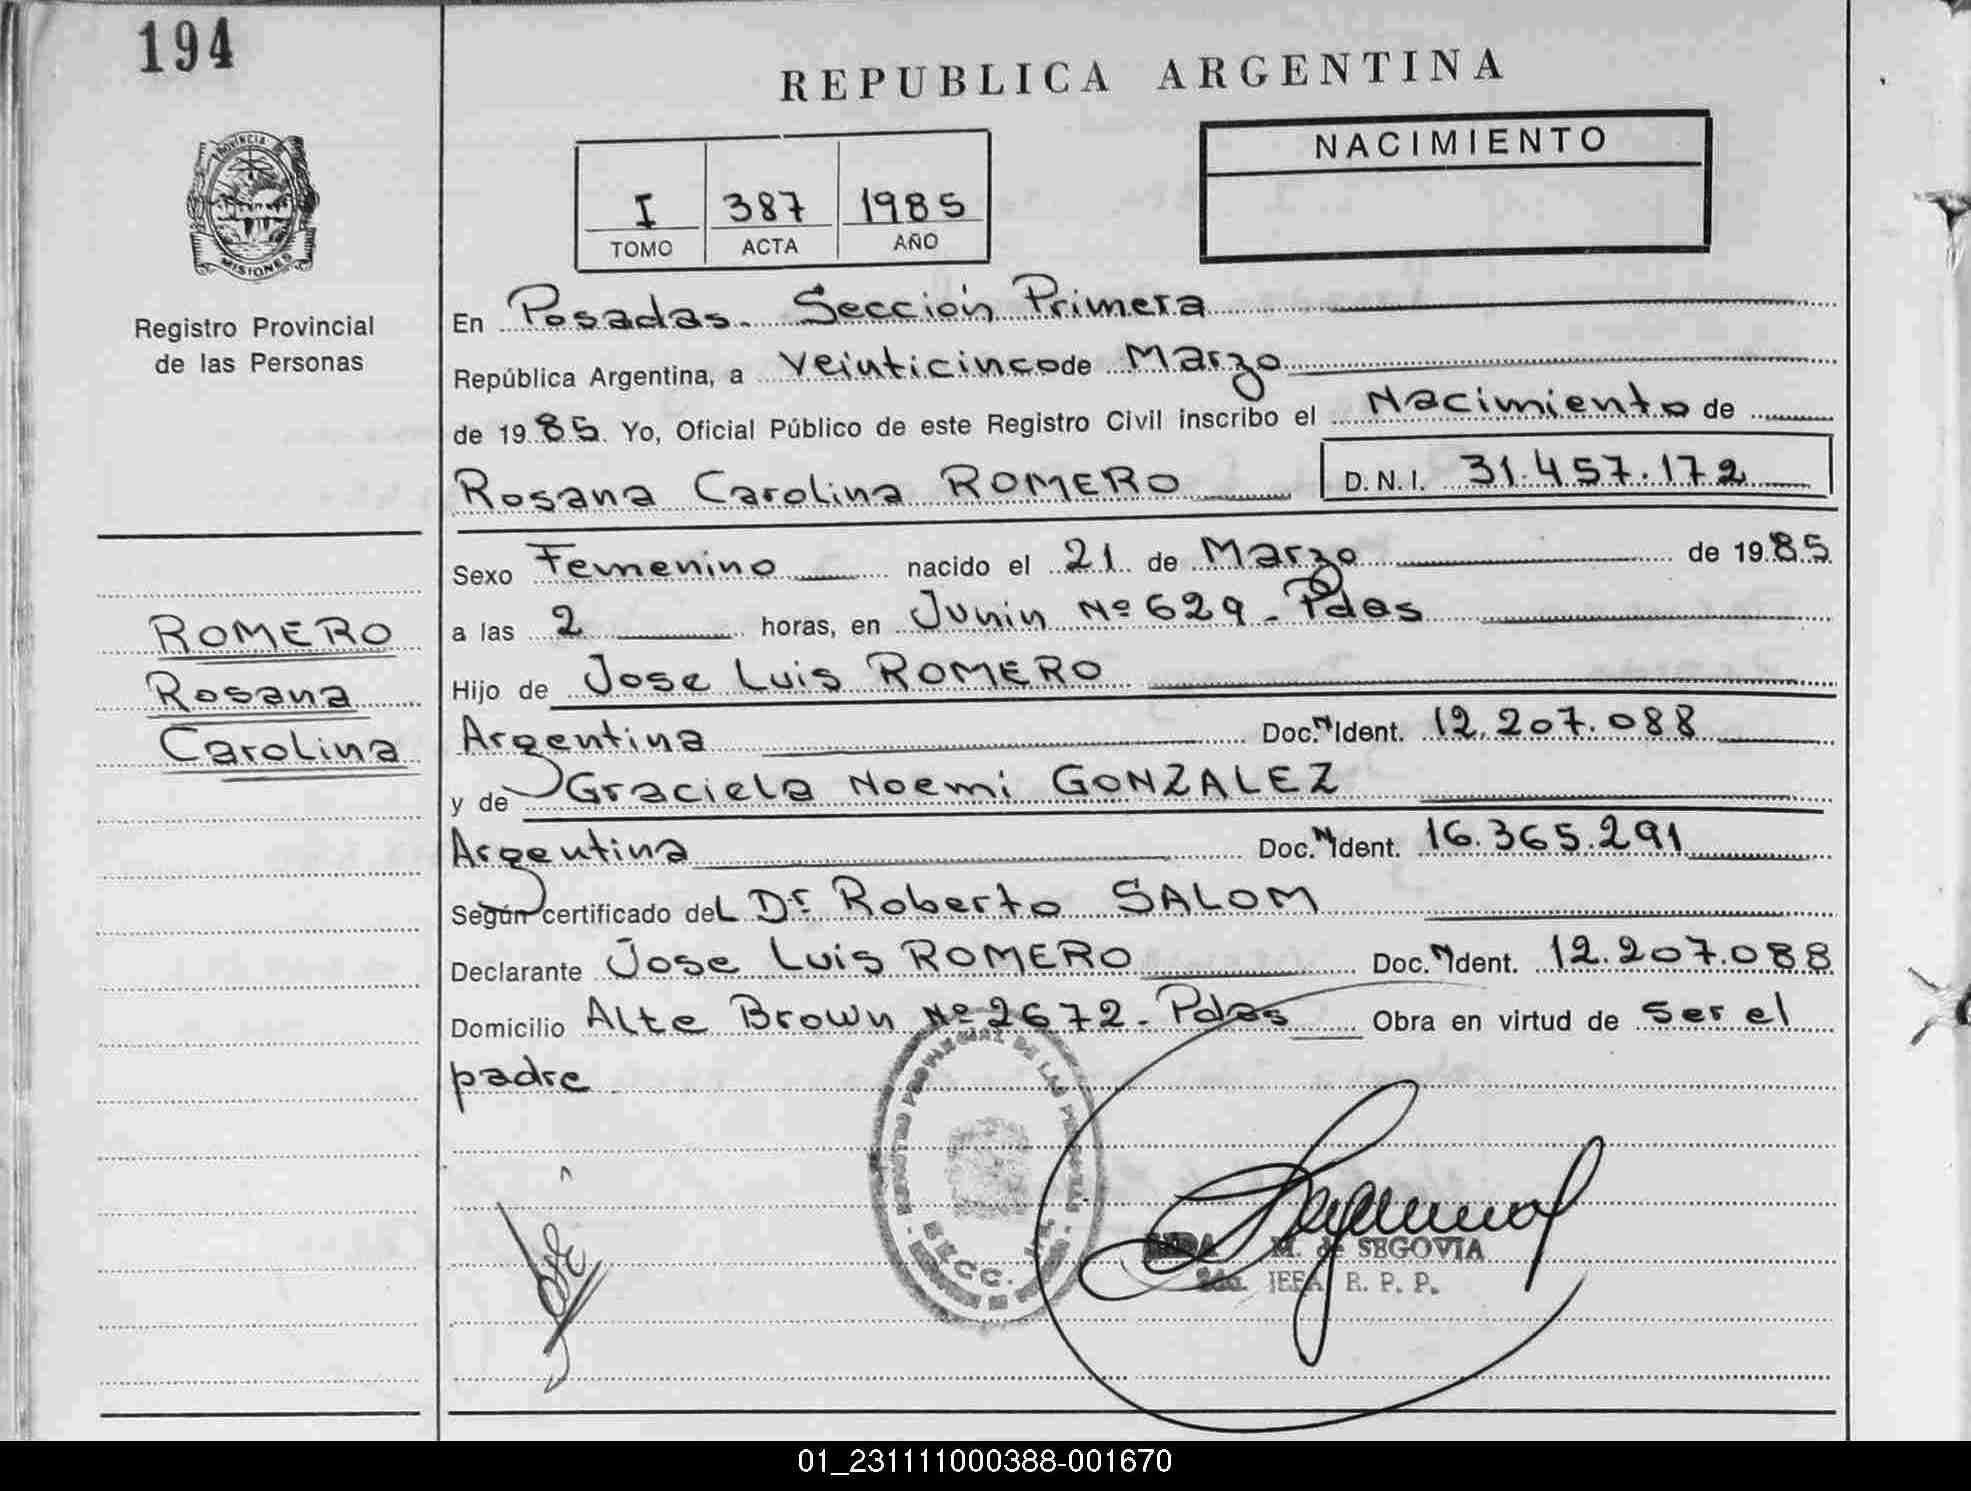 194
REPUBLICA ARGENTINA
PROVINCIA DE
MISIONES
Registro Provincial
de las Personas
I 387 1985
TOMO ACTA AÑO
NACIMIENTO
En Posadas. Sección Primera
República Argentina, a veinticinco de Marzo
de 1985. Yo, Oficial Público de este Registro Civil inscribo el Nacimiento de
Rosana Carolina ROMERO D.N.I. 31.457.172
Sexo Femenino nacido el 21 de Marzo de 1985
a las 2 horas, en Junin Nº 629 - Pdas
Hijo de Jose Luis ROMERO
Argentina Doc. N Ident. 12.207.088
y de Graciela Noemi GONZALEZ
Argentina Doc. N Ident. 16.365.291
Según certificado del Dr Roberto SALOM
Declarante Jose Luis ROMERO Doc. N Ident. 12.207.088
Domicilio Alte Brown Nº 2672 - Pdas Obra en virtud de ser el
padre
ROMERO
Rosana
Carolina
REGISTRO PROVINCIAL DE LAS PERSONAS
SECC.
M. de SEGOVIA
JEFA R. P. P.
01_231111000388-001670